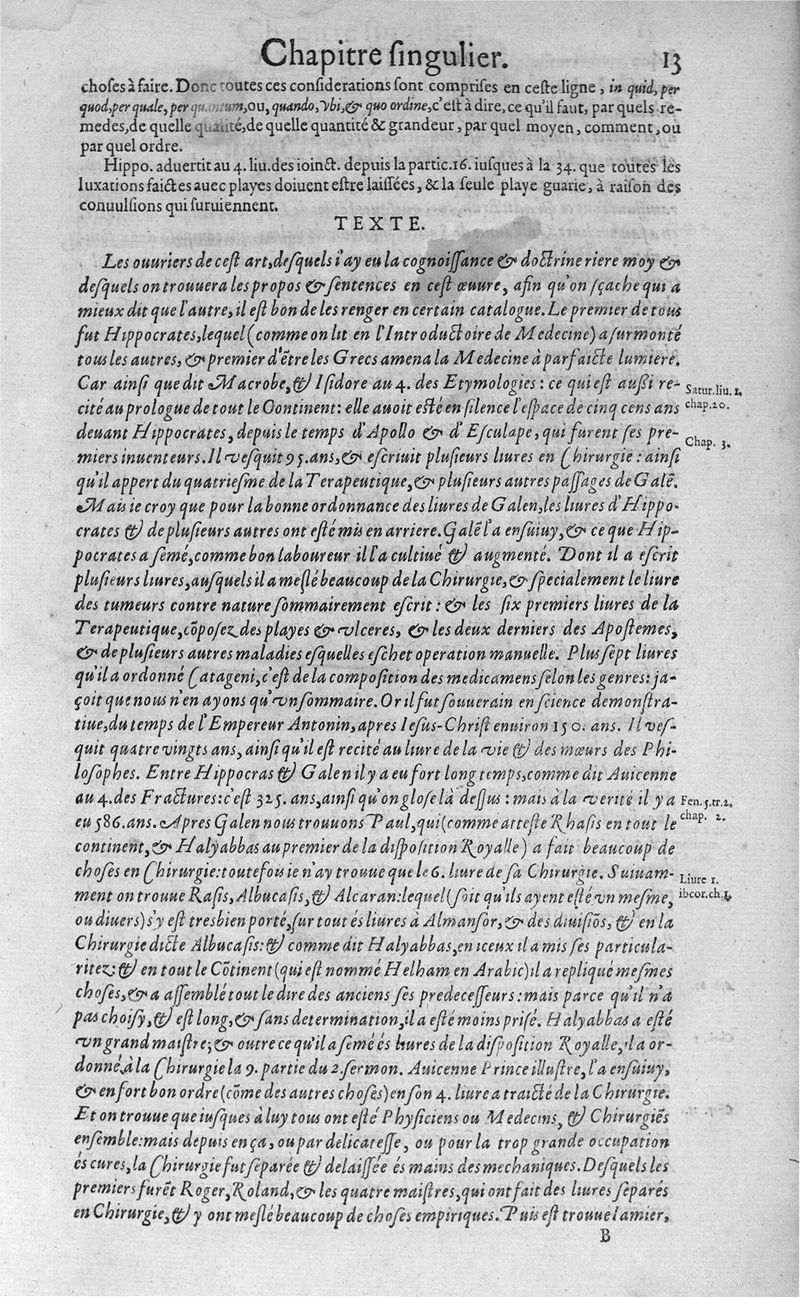 Chapitre ſingulier. 13
choſes à faire. Donc toutes ces conſiderations ſont compriſes en ceſte ligne, in quid, per
quod, per quale, per quantum, ou, quando, vbi, & quo ordine, c'eſt à dire, ce qu'il faut, par quels re-
medes, de quelle qualité, de quelle quantité & grandeur, par quel moyen, comment, ou
par quel ordre.
Hippo. aduertit au 4. liu. des ioinct. depuis la partic. 16. iuſques à la 34. que toutes les
luxations faictes auec playes doiuent eſtre laiſſées, & la ſeule playe guarie, à raiſon des
conuulſions qui ſuruiennent.
TEXTE.
Les ouuriers de ceſt art, deſquels i'ay eu la cognoiſſance & doctrine riere moy &
deſquels on trouuera les propos & ſentences en ceſt œuure, afin qu'on ſçache qui a
mieux dit que l'autre, il eſt bon de les renger en certain catalogue. Le premier de tous
fut Hippocrates, lequel (comme on lit en l'Introductoire de Medecine) a ſurmonté
tous les autres, & premier d'ẽtre les Grecs amena la Medecine à parfaicte lumiere.
Car ainſi que dit Macrobe, & Iſidore au 4. des Etymologies : ce qui eſt auſſi re-
Satur. liu. 1.
cité au prologue de tout le Continent: elle auoit eſté en ſilence l'eſpace de cinq cens ans
chap. 20.
deuant Hippocrates, depuis le temps d'Apollo & d'Eſculape, qui furent ſes pre-
Chap. 3.
miers inuenteurs. Il veſquit 95. ans, & eſcriuit pluſieurs liures en Chirurgie : ainſi
qu'il appert du quatrieſme de la Terapeutique, & pluſieurs autres paſſages de Galẽ.
Mais ie croy que pour la bonne ordonnance des liures de Galen, les liures d'Hippo-
crates & de pluſieurs autres ont eſté mis en arriere. Galẽ l'a enſuiuy, & ce que Hip-
pocrates a ſemé, comme bon laboureur il l'a cultiué & augmenté. Dont il a eſcrit
pluſieurs liures, auſquels il a meſlé beaucoup de la Chirurgie, & ſpecialement le liure
des tumeurs contre nature ſommairement eſcrit : & les ſix premiers liures de la
Terapeutique, cõpoſez des playes & vlceres, & les deux derniers des Apoſtemes,
& de pluſieurs autres maladies eſquelles eſchet operation manuelle. Plus ſept liures
qu'il a ordonné Catageni, c'eſt de la compoſition des medicamens ſelon les genres: ja-
çoit que nous n'en ayons qu'vn ſommaire. Or il fut ſouuerain en ſcience demonſtra-
tiue, du temps de l'Empereur Antonin, apres Ieſus-Chriſt enuiron 150. ans. Il veſ-
quit quatre vingts ans, ainſi qu'il eſt recité au liure de la vie & des mœurs des Phi-
loſophes. Entre Hippocras & Galen il y a eu fort long temps, comme dit Auicenne
au 4. des Fractures: c'eſt 325. ans, ainſi qu'on gloſe là deſſus : mais à la verité il y a
Fen. 5. tr. 2.
eu 586. ans. Apres Galen nous trouuons Paul, qui (comme atteſte Rhaſis en tout le
chap. 2.
continent, & Halyabbas au premier de la diſpoſition Royalle) a fait beaucoup de
choſes en Chirurgie: toutefou ie n'ay trouue que le 6. liure de ſa Chirurgie. Suiuam-
Liure 1.
ment on trouue Raſis, Albucaſis, & Alcaran: lequel (ſoit qu'ils ayent eſté vn meſme,
ibcor. ch. 1.
ou diuers) s'y eſt tresbien porté, ſur tout és liures à Almanſor, & des diuiſiõs, & en la
Chirurgie dicte Albucaſis: & comme dit Halyabbas, en iceux il a mis ſes particula-
ritez: & en tout le Cõtinent (qui eſt nommé Helham en Arabic) il a repliqué meſmes
choſes, & a aſſemblé tout le dire des anciens ſes predeceſſeurs: mais parce qu'il n'a
pas choiſy, & eſt long, & ſans determination, il a eſté moins priſé. Halyabbas a eſté
vn grand maiſtre; & outre ce qu'il a ſemé és liures de la diſpoſition Royalle, il a or-
donné à la Chirurgie la 9. partie du 2. ſermon. Auicenne Prince illuſtre, l'a enſuiuy,
& en fort bon ordre (cõme des autres choſes) en ſon 4. liure a traicté de la Chirurgie.
Et on trouue que iuſques à luy tous ont eſté Phyſiciens ou Medecins, & Chirurgiẽs
enſemble: mais depuis en ça, ou par delicateſſe, ou pour la trop grande occupation
és cures, la Chirurgie fut ſeparée & delaiſſée és mains des mechaniques. Deſquels les
premiers furẽt Roger, Roland, & les quatre maiſtres, qui ont fait des liures ſeparés
en Chirurgie, & y ont meſlé beaucoup de choſes empiriques. Puis eſt trouué Iamier,
B